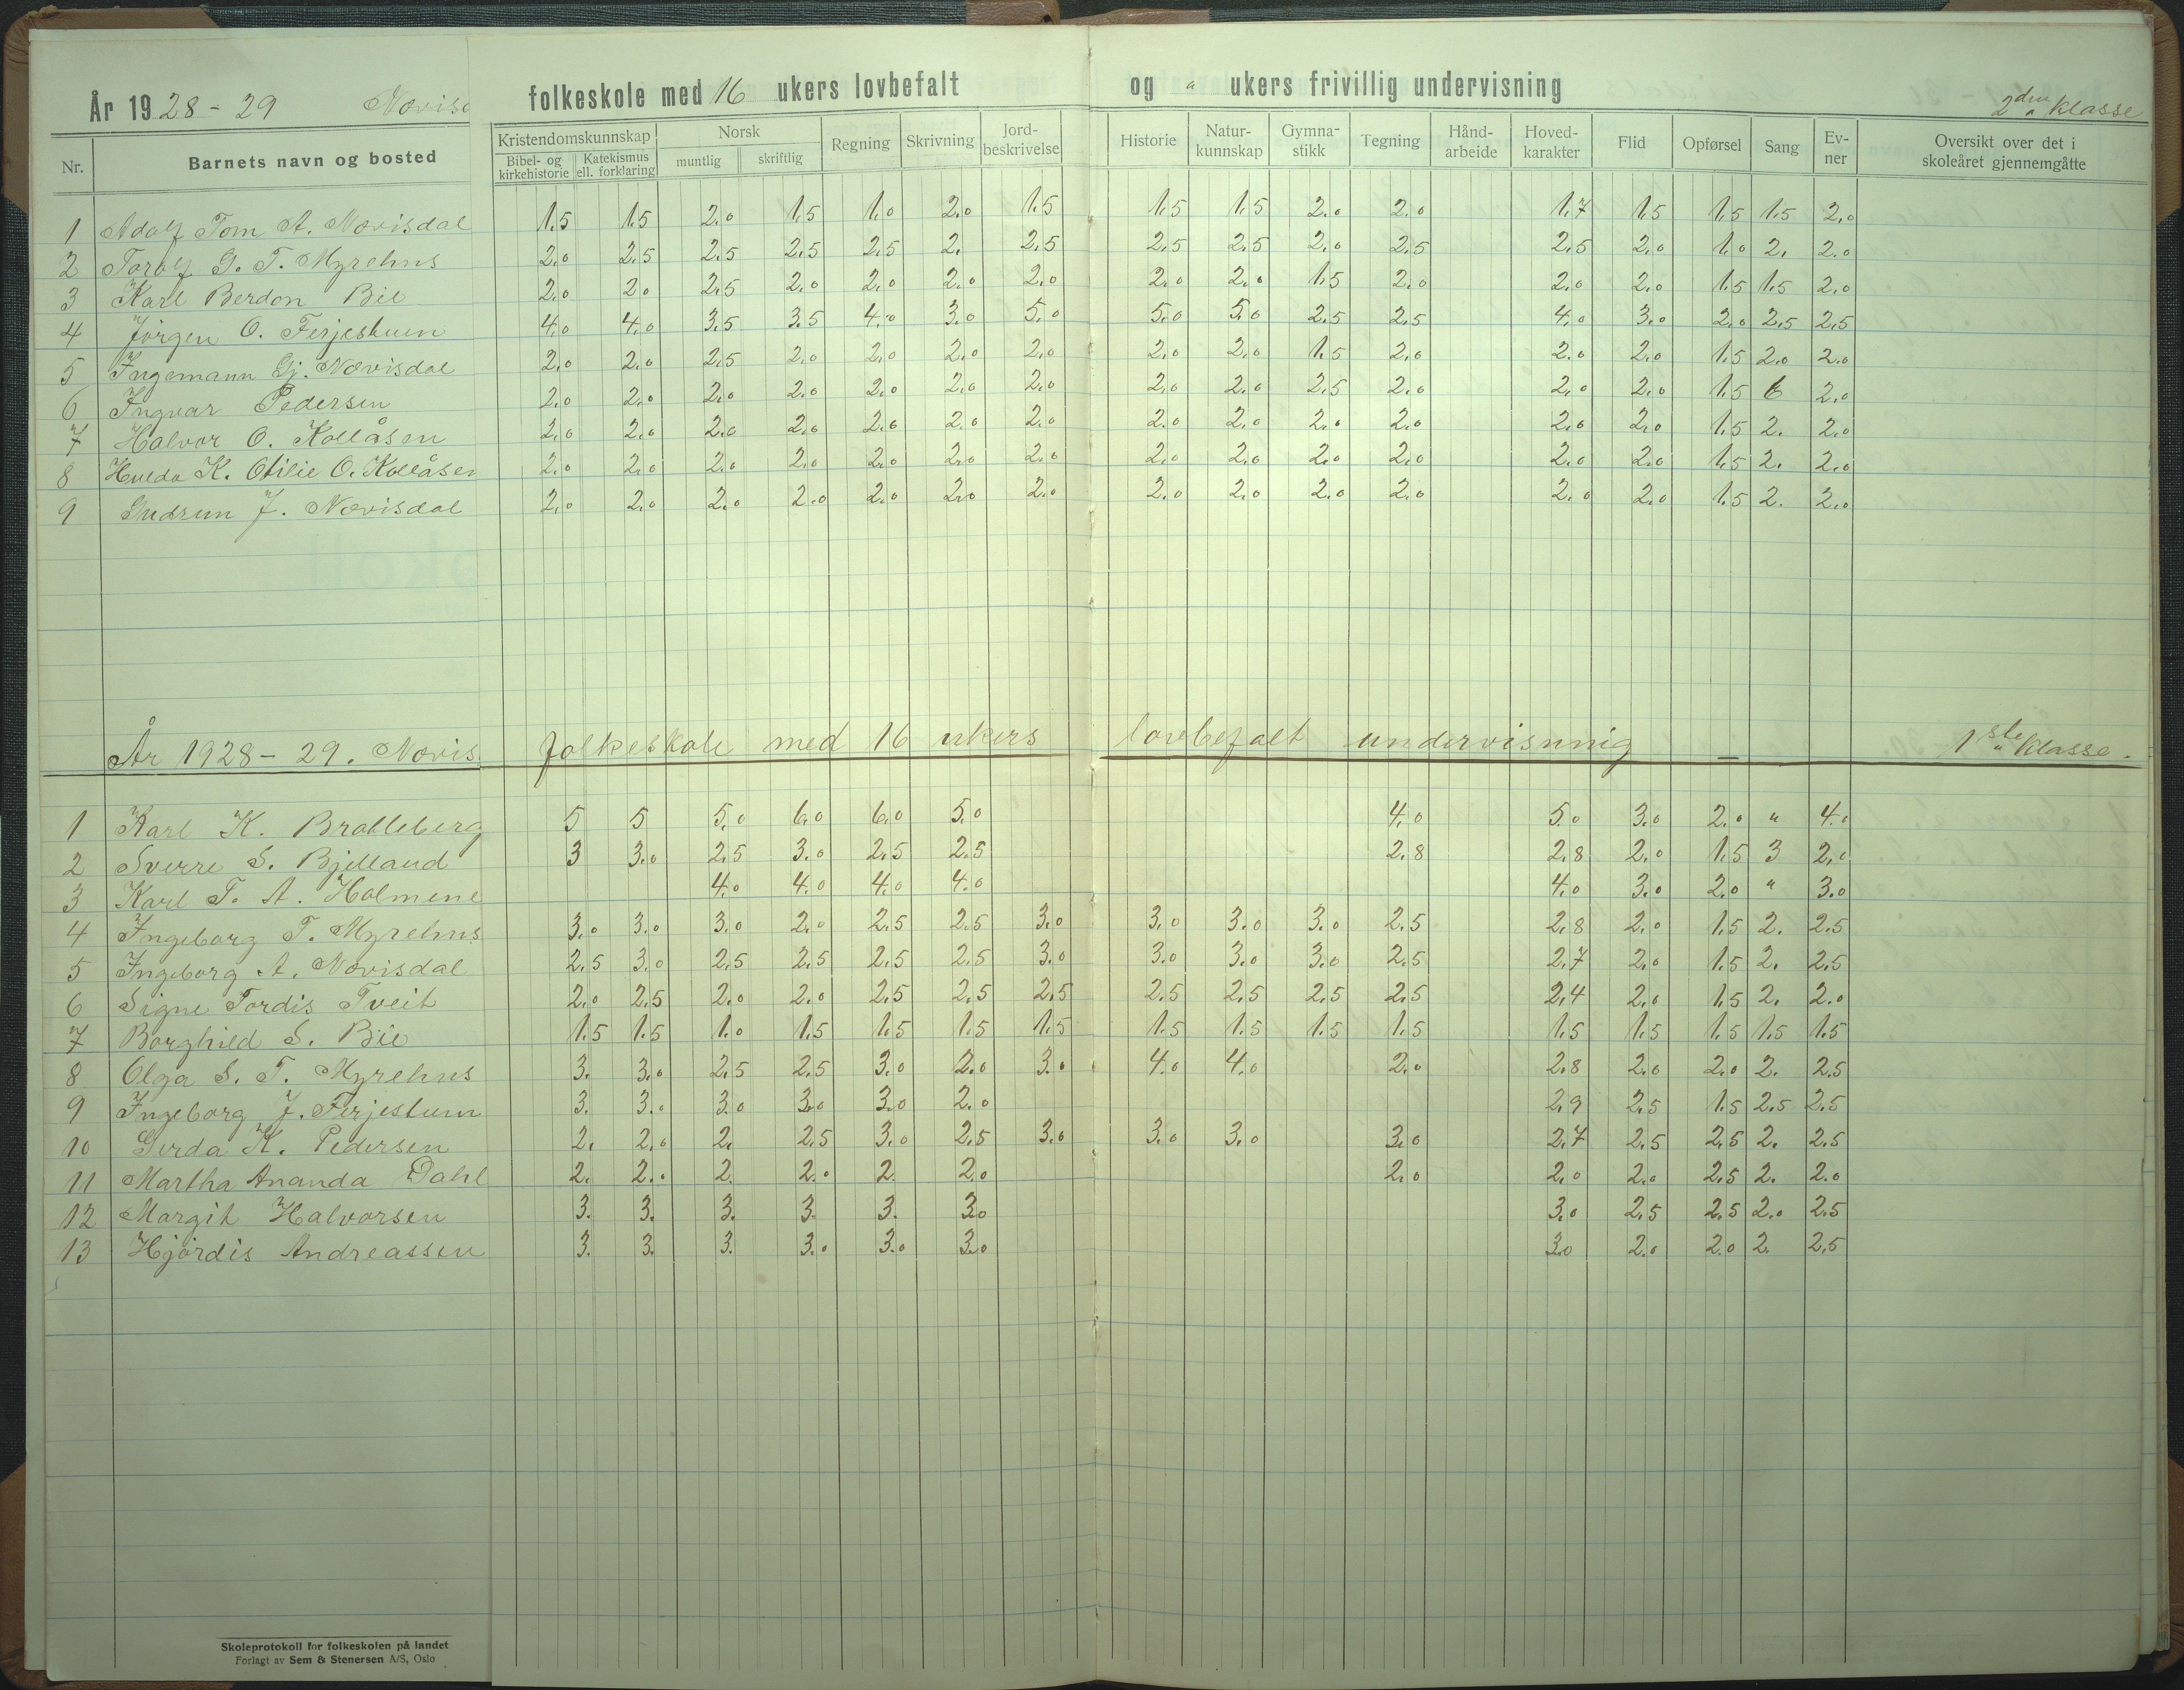 År 1928-29 Nævisd folkeskole med 16 ukers lovbefalt og " ukers frivillig undervisning 2den klasse
Nr. Barnets navn og bosted Kristendomskunnskap Norsk Regning Skrivning Jord-beskrivelse Historie Natur-kunnskap Gymna-stikk Tegning Hånd-arbeide Hoved-karakter Flid Opførsel Sang Ev-ner Oversikt over det i skoleåret gjennemgåtte
Bibel- og kirkehistorie Katekismus ell. forklaring muntlig skriftlig
1 Adolf Tom A. Nævisdal 1,5 1,5 2,0 1,5 1,0 2,0 1,5 1,5 1,5 2,0 2,0 1,7 1,5 1,5 1,5 2,0
2 Torolf G. T. Myrehus 2,0 2,5 2,5 2,5 2,5 2, 2,5 2,5 2,5 2,0 2,5 2,5 2,0 1,0 2, 2,0
3 Karl Berdon Bie 2,0 2,0 2,5 2,0 2,0 2,0 2,0 2,0 2,0 1,5 2,0 2,0 2,0 1,5 1,5 2,0
4 Jörgen O. Ferjestuen 4,0 4,0 3,5 3,5 4,0 3,0 5,0 5,0 5,0 2,5 2,5 4,0 3,0 2,0 2,5 2,5
5 Ingemann Gj. Nævisdal 2,0 2,0 2,5 2,0 2,0 2,0 2,0 2,0 2,0 1,5 2,0 2,0 2,0 1,5 2,0 2,0
6 Ingvar Pedersen 2,0 2,0 2,0 2,0 2,0 2,0 2,0 2,0 2,0 2,5 2,0 2,0 2,0 1,5 6 2,0
7 Halvor O. Kollåsen 2,0 2,0 2,0 2,0 2,0 2,0 2,0 2,0 2,0 2,0 2,0 2,0 2,0 1,5 2. 2,0
8 Hulda K. Otilie O. Kollåsen 2,0 2,0 2,0 2,0 2,0 2,0 2,0 2,0 2,0 2,0 2,0 2,0 2,0 1,5 2. 2,0
9 Gudrun J. Nævisdal 2,0 2,0 2,0 2,0 2,0 2,0 2,0 2,0 2,0 2,0 2,0 2,0 2,0 1,5 2. 2,0
År 1928-29. Nævis. folkeskole med 16 ukers lovbefalt undervisning — 1ste klasse.
1 Karl K. Bratteberg 5 5 5,0 6,0 6,0 5,0 4,0 5,0 3,0 2,0 " 4,0
2 Sverre S. Bjelland 3 3,0 2,5 3,0 2,5 2,5 2,8 2,8 2,0 1,5 3 2,0
3 Karl T. A. Holmene 4,0 4,0 4,0 4,0 4,0 3,0 2,0 " 3,0
4 Ingeborg T. Myrehus 3,0 3,0 3,0 2,0 2,5 2,5 3,0 3,0 3,0 3,0 2,5 2,8 2,0 1,5 2. 2,5
5 Ingeborg A. Nævisdal 2,5 3,0 2,5 2,5 2,5 2,5 3,0 3,0 3,0 3,0 2,5 2,7 2,0 1,5 2. 2,5
6 Signe Tordis Tveit 2,0 2,5 2,0 2,0 2,5 2,5 2,5 2,5 2,5 2,5 2,5 2,4 2,0 1,5 2. 2,0
7 Borghild S. Bie 1,5 1,5 1,0 1,5 1,5 1,5 1,5 1,5 1,5 1,5 1,5 1,5 1,5 1,5 1,5 1,5
8 Olga S. T. Myrehus 3. 3,0 2,5 2,5 3,0 2,0 3,0 4,0 4,0 2,0 2,8 2,0 2,0 2. 2,5
9 Ingeborg J. Ferjestuen 3. 3,0 3,0 3,0 3,0 2,0 2,9 2,5 1,5 2,5 2,5
10 Gerda K. Pedersen 2. 2,0 2. 2,5 3,0 2,5 3,0 3,0 3,0 3,0 2,7 2,5 2,5 2. 2,5
11 Martha Ananda Dahl 2. 2,0 2. 2,0 2. 2,0 2,0 2,0 2,0 2,5 2. 2,0
12 Margit Halvorsen 3. 3. 3. 3. 3. 3,0 3,0 2,5 2,5 2,0 2,5
13 Hjördis Andreassen 3. 3. 3. 3,0 3,0 3,0 3,0 2,0 2,0 2. 2,5
Skoleprotokoll for folkeskolen på landet
Forlagt av Sem & Stenersen A/S, Oslo